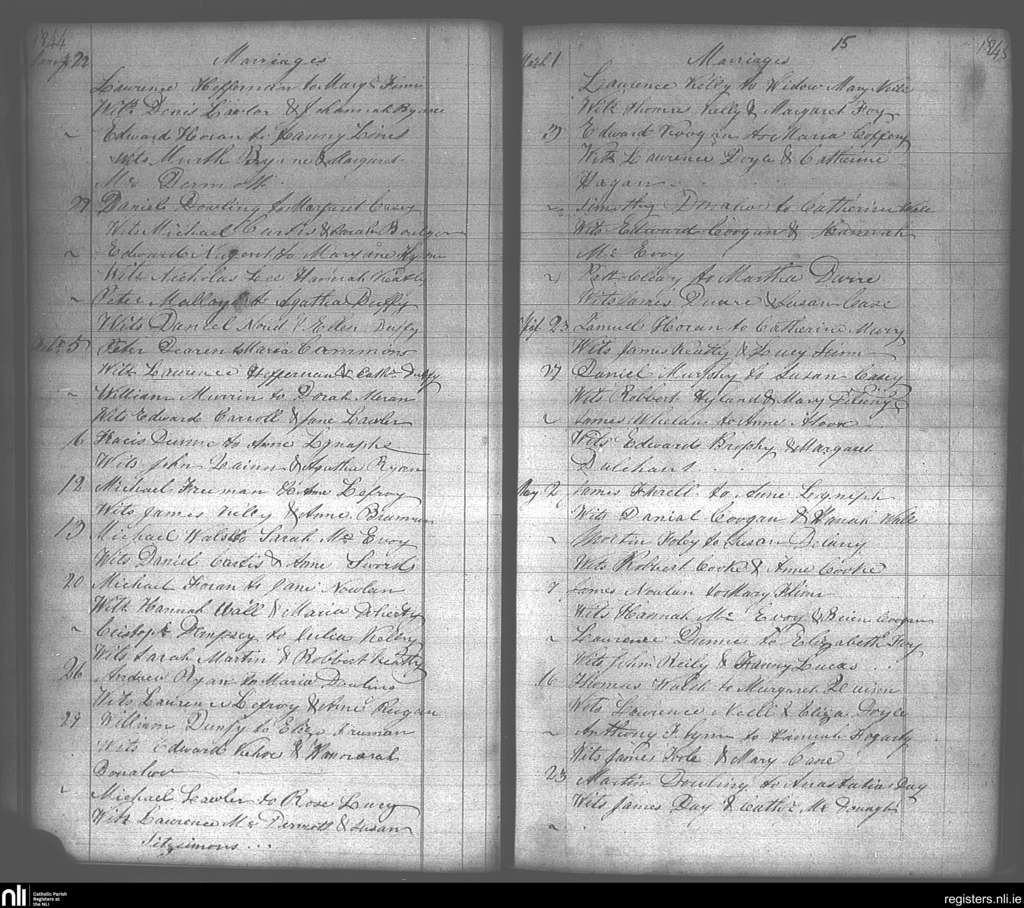 1844
22 Marriages
Lawrence Heffernan to Mary
Wits Denis Lawlor & Johannah Byrne
~ Edward Horan to Fanny Lines
Wits Murth Byrne & Margaret
Mc Dermott
27 Daniel Dowling to Margaret Casey
Wits Michael Curtis & Sarah Boulger
~ Edward Nugent to Maryanne
Wits Nicholas Lee Hannah Keatly
~ Peter Mallay to Agatha Duffy
Wits Daniel Noud & Ellen Duffy
5 Peter Dearen to Maria Cammions
Wits Lawrence Heffernan & Cathn Duffy
~ William Murrin to Dorah Meran
Wits Edward Carroll & Jane Lawler
6 Dunne to Anne Lynaphe
Wits John Lainn & Agatha Ryan
12 Michael Freeman to Anne Lefroy
Wits James Kelly & Anne Brennan
13 Michael Walsh to Sarah Mc Evoy
Wits Daniel Curtis & Anne Swords
20 Michael Foran to Jane Nowlan
Wits Hannah Wall & Maria Doherty
~ Cristophr Hempsey to Julia Kelly
Wits Sarah Martin & Robbert Keatly
26 Andrew Ryan to Maria Dowling
Wits Laurence Lefroy & Anne Reogan
29 William Dunfy to Eliza Freeman
Wits Edward Kehoe & Hannorah
Donahoe
~ Michael Lawler to Rose Lucy
Wits Lawrence Mc Dermott & Susan
Fitzsimons ...
15
1845
March 1 Marriages
Lawrence Kelly to Widow Mary
Wits Thomas Kelly & Margaret Foy
Edward Coogan to Maria Coffony
Wits Lawrence Doyle & Catherine
Hagan
~ Timothy Donahoe to Catherine Wall
Wits Edward Coogan & Hannah
Mc Evoy
~ Cleary to Martha Dunne
Wits James Duare & Susan Case
23 Samuel Horan to Catherine Merry
Wits James Keatly & Lucy Finn
27 Daniel Murphy to Susan Casey
Wits Robbert Hyland & Mary
~ James Whelan to Anne Moore
Wits Edward Brophy & Margaret
Dulehant
May 2 James Tyrell to Anne Lynuph
Wits Danial Coogan & Hanah Wall
~ Martin Foley to Susan Delany
Wits Robbert Cooke & Anne Cooke
7 James Nowlan to Mary Flinn
Wits Hannah Mc Evoy & Coogan
~ Lawrence Dunne to Elizabeth Foy
Wits John Reily & Fanny Lucas
16 Thomas Walsh to Murgaret
Wits Lawrence Neill & Eliza Doyle
~ Anthony Flynn to Hannah Fogarty
Wits James Toole & Mary Cane
23 Martin Dowling to Anastatia Day
Wits James Day & Cathe Mc Donagh
~
nli
Catholic Parish
Registers at
the NLI
registers.nli.ie